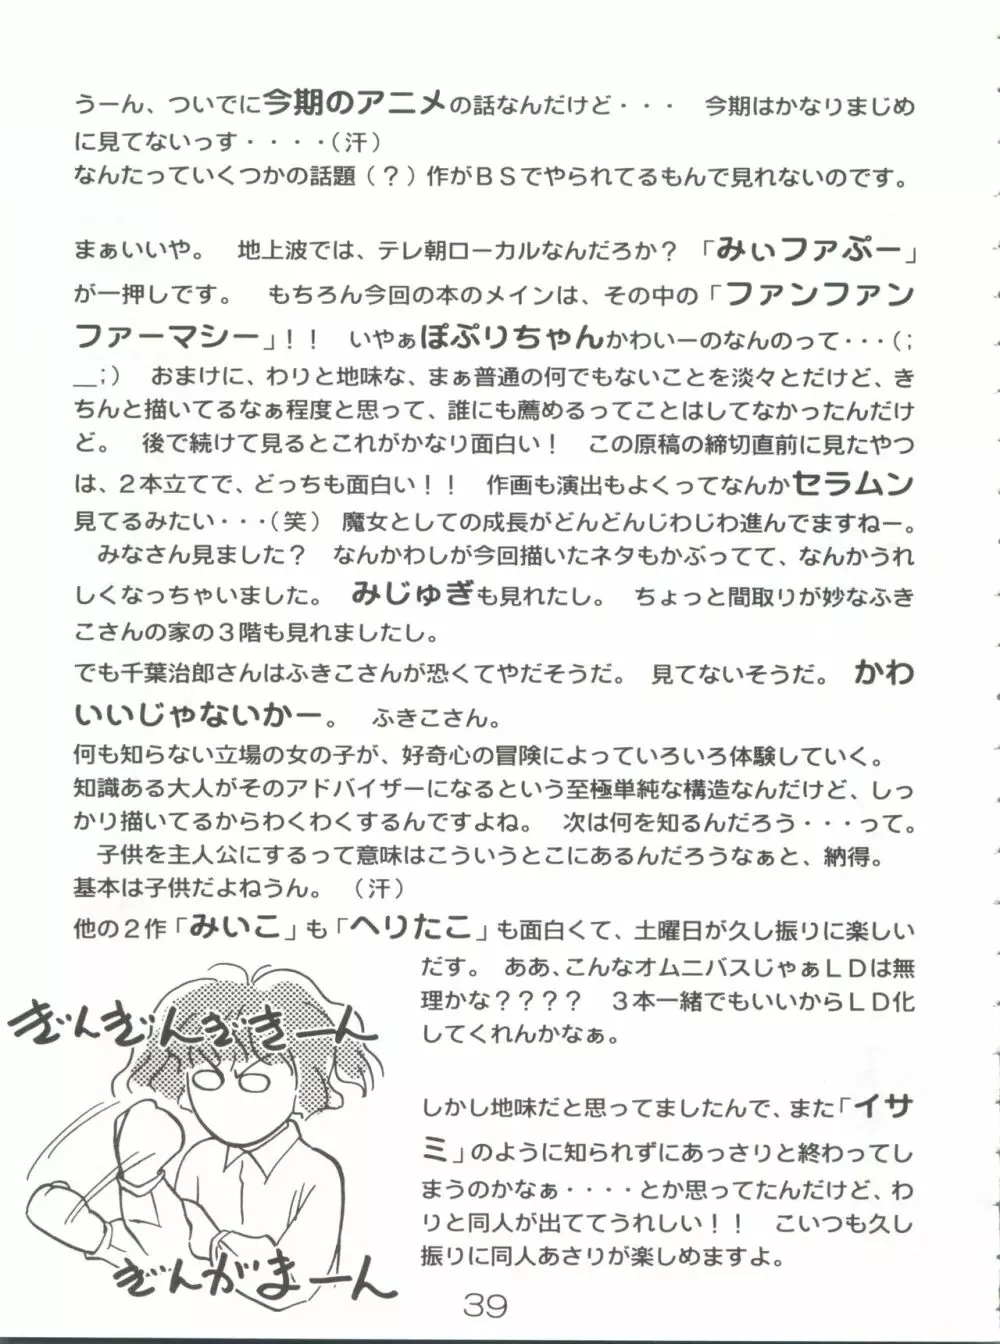 うーん、ついでに今期のアニメの話なんだけど・・・　今期はかなりまじめ
に見てないっす・・・・（汗）
なんたっていくつかの話題（？）作がＢＳでやられてるもんで見れないのです。
まぁいいや。　地上波では、テレ朝ローカルなんだろか？　「みぃファぷー」
が一押しです。　もちろん今回の本のメインは、その中の「ファンファン
ファーマシー」！！　いやぁぽぷりちゃんかわいーのなんのって・・・（；
＿；）　おまけに、わりと地味な、まぁ普通の何でもないことを淡々とだけど、き
ちんと描いてるなぁ程度と思って、誰にも薦めるってことはしてなかったんだけ
ど。　後で続けて見るとこれがかなり面白い！　この原稿の締切直前に見たやつ
は、２本立てで、どっちも面白い！！　作画も演出もよくってなんかセラムン
見てるみたい・・・（笑）　魔女としての成長がどんどんじわじわ進んでますねー。
　みなさん見ました？　なんかわしが今回描いたネタもかぶってて、なんかうれ
しくなっちゃいました。　みじゅぎも見れたし。　ちょっと間取りが妙なふき
こさんの家の３階も見れましたし。
でも千葉治郎さんはふきこさんが恐くてやだそうだ。　見てないそうだ。　かわ
いいじゃないかー。　ふきこさん。
何も知らない立場の女の子が、好奇心の冒険によっていろいろ体験していく。
知識ある大人がそのアドバイザーになるという至極単純な構造なんだけど、しっ
かり描いてるからわくわくするんですよね。　次は何を知るんだろう・・・って。
　子供を主人公にするって意味はこういうとこにあるんだろうなぁと、納得。
基本は子供だよねうん。　（汗）
他の２作「みいこ」も「ヘリたこ」も面白くて、土曜日が久し振りに楽しい
だす。　ああ、こんなオムニバスじゃぁＬＤは無
理かな？？？？　３本一緒でもいいからＬＤ化
してくれんかなぁ。
しかし地味だと思ってましたんで、また「イサ
ミ」のように知られずにあっさりと終わってし
まうのかなぁ・・・・とか思ってたんだけど、わ
りと同人が出ててうれしい！！　こいつも久し
振りに同人あさりが楽しめますよ。
ぎんぎんぎぎーん
ぎんがまーん
39